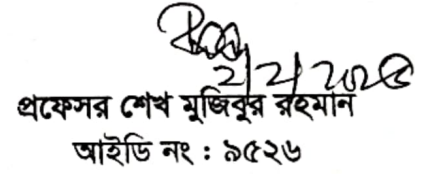 2/2/202
প্রফেসর শেখ মুজিবুর রহমান
আইডি নং : ৯৫২৬